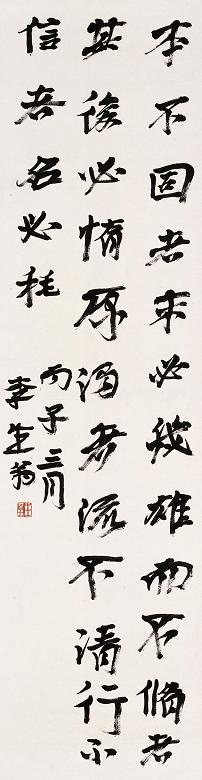 本不固者末必幾雄而不脩者
其後必惰原濁者流不清行不
信者名必秏
丙子三月
李生翁